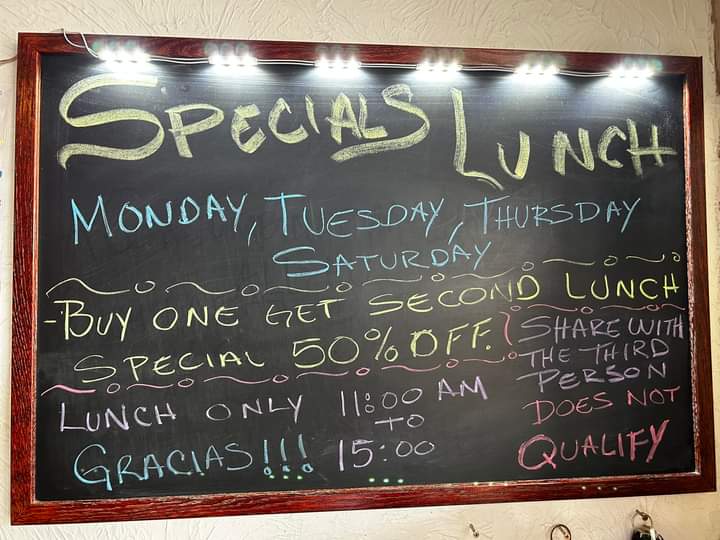 SPECIALS LUNCH
MONDAY, TUESDAY, THURSDAY
SATURDAY
-BUY ONE GET SECOND LUNCH
SPECIAL 50% OFF.
SHARE WITH
THE THIRD
PERSON
DOES NOT
QUALIFY
LUNCH ONLY 11:00 AM
TO
GRACIAS!!! 15:00